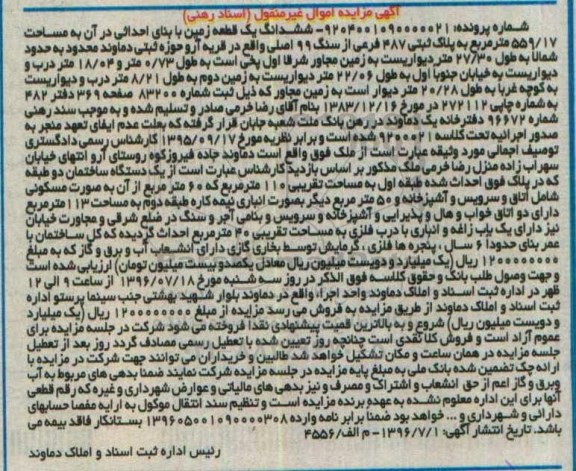 آگهی مزایده اموال غیرمنقول (اسناد رهنی)
شماره پرونده: ۹۲۰۴۰۰۱۰۹۰۰۰۰۰۲۱- ششدانگ یک قطعه زمین با بنای احداثی در آن به مساحت
۵۵۹/۱۷ مترمربع به پلاک ثبتی ۴۸۷ فرعی از سنگ ۹۹ اصلی واقع در قریه آرو حوزه ثبتی دماوند محدود به حدود
شمالا به طول ۲۷/۳۰ متر دیواریست به زمین مجاور شرقا اول پخی است به طول ۰/۷۳ متر و ۱۸/۰۴ متر درب و
دیواریست به خیابان جنوبا اول به طول ۲۲/۰۶ متر دیواریست به زمین دوم به طول ۸/۲۱ متر درب و دیواریست
به کوچه غربا به طول ۲۰/۲۸ متر دیوار است به زمین مجاور که ذیل ثبت شماره ۸۳۲۰۰ صفحه ۳۶۹ دفتر ۴۸۲
به شماره چاپی ۲۷۲۱۱۲ در مورخ ۱۳۸۳/۱۲/۱۶ بنام آقای رضا خرمی صادر و تسلیم شده و به موجب سند رهنی
شماره ۹۶۶۷۲ دفترخانه یک دماوند در رهن بانک ملت شعبه جابان قرار گرفته که بعلت عدم ایفای تعهد منجر به
صدور اجرائیه تحت کلاسه ۹۲۰۰۰۲۱ شده است و برابر نظریه مورخ ۱۳۹۵/۰۹/۱۷ کارشناس رسمی دادگستری
توصیف اجمالی مورد وثیقه عبارت است از ملک فوق واقع است دماوند جاده فیروزکوه روستای آرو انتهای خیابان
سهراب زاده منزل رضا خرمی ملک مذکور بر اساس بازدید کارشناس عبارت است از یک دستگاه ساختمان دو طبقه
که در پلاک فوق احداث شده طبقه اول به مساحت تقریبی ۱۱۰ مترمربع که ۶۰ متر مربع از آن به صورت مسکونی
شامل اتاق و سرویس و آشپزخانه و ۵۰ متر مربع دیگر بصورت انباری نیمه کاره طبقه دوم به مساحت ۱۱۳ مترمربع
دارای دو اتاق خواب و هال و پذیرایی و آشپزخانه و سرویس و بنامی آجر و سنگ در ضلع شرقی و مجاورت خیابان
نیز دارای یک باب زاغه و انباری با درب فلزی به مساحت تقریبی ۴۰ مترمربع احداث گردیده که کل ساختمان با
عمر بنای حدودا ۶ سال ، پنجره ها فلزی ، گرمایش توسط بخاری گازی دارای انشعاب آب و برق و گاز که به مبلغ
۱۲۰۰۰۰۰۰۰۰ ریال (یک میلیارد و دویست میلیون ریال معادل یکصدو بیست میلیون تومان) ارزیابی شده است
و جهت وصول طلب بانک و حقوق کلاسه فوق الذکر در روز سه شنبه مورخ ۱۳۹۶/۰۷/۱۸ از ساعت ۹ الی ۱۲
ظهر در اداره ثبت اسناد و املاک دماوند واحد اجرا، واقع در دماوند بلوار شهید بهشتی جنب سینما پرستو اداره
ثبت اسناد و املاک دماوند از طریق مزایده به فروش می رسد مزایده از مبلغ ۱۲۰۰۰۰۰۰۰۰ ریال (یک میلیارد
و دویست میلیون ریال) شروع و به بالاترین قمیت پیشنهادی نقدا فروخته می شود شرکت در جلسه مزایده برای
عموم آزاد است و فروش کلا نقدی است چنانچه روز تعیین شده با تعطیل رسمی مصادف گردد روز بعد از تعطیل
جلسه مزایده در همان ساعت و مکان تشکیل خواهد شد طالبین و خریداران می توانند جهت شرکت در مزایده با
ارائه چک تضمین شده بانک ملی به مبلغ پایه مزایده در جلسه مزایده شرکت نمایند ضمنا بدهی های مربوط به آب
وبرق و گاز اعم از حق انشعاب و اشتراک و مصرف و نیز بدهی های مالیاتی و عوارض شهرداری و غیره که رقم قطعی
آنها برای این اداره معلوم نشده به عهده برنده مزایده است و تنظیم سند انتقال موکول به ارایه مفصا حسابهای
دارائی و شهرداری و ... خواهد بود ضمنا برابر نامه وارده ۱۳۹۶۰۵۰۰۱۰۹۰۰۰۰۳۰۸ بستانکار فاقد بیمه می
باشد. تاریخ انتشار آگهی: ۱۳۹۶/۷/۱ - م الف/۴۵۵۶
رئیس اداره ثبت اسناد و املاک دماوند